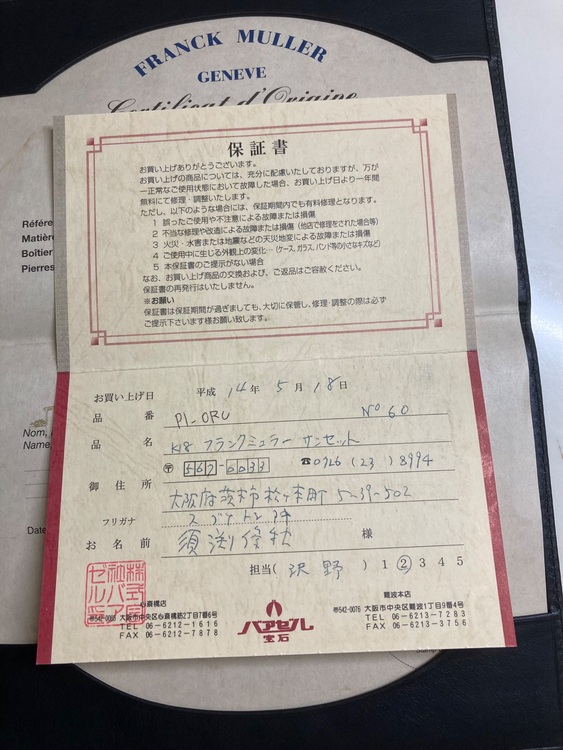 FRANCK MULLER
GENEVE
Certificat d'Origine
Référe
Matièr
Boîtier
Pierres
Nom,
Name,
Date
保証書
お買い上げありがとうございます。
お買い上げの商品については、充分に配慮いたしておりますが、万が
一正常なご使用状態において故障した場合、お買い上げ日より一年間
無料にて修理・調整いたします。
ただし、以下のような場合には、保証期間内でも有料修理となります。
1 誤ったご使用や不注意による故障または損傷
2 不当な修理や改造による故障または損傷(他店で修理をされた場合等)
3 火災・水害または地震などの天災地変による故障または損傷
4 ご使用中に生じる外観上の変化…(ケース、ガラス、バンド等の小さなキズなど)
5 本保証書のご提示がない場合
なお、お買い上げ商品の交換および、ご返品はご容赦ください。
保証書の再発行はいたしません。
※お願い
保証書は保証期間が過ぎましても、大切に保管し、修理・調整の際は必ず
ご提示下さいます様お願い致します。
お買い上げ日 平成 14 年 5 月 18 日
品番 PI-ORU No 60
品名 K18 フランクミュラー サンセット
〒 567-0033 ☎0726 (23) 8994
御住所 大阪府茨木市松ヶ本町 5-39-502
フリガナ
お名前 須渕 様
担当( 沢野 ) 1 ② 3 4 5
心斎橋店
〒542-0085 大阪市中央区心斎橋筋2丁目7番6号
TEL 06-6212-1616
FAX 06-6212-7878
パアゼル
宝石
難波本店
〒542-0076 大阪市中央区難波1丁目9番4号
TEL 06-6213-7283
FAX 06-6213-3756